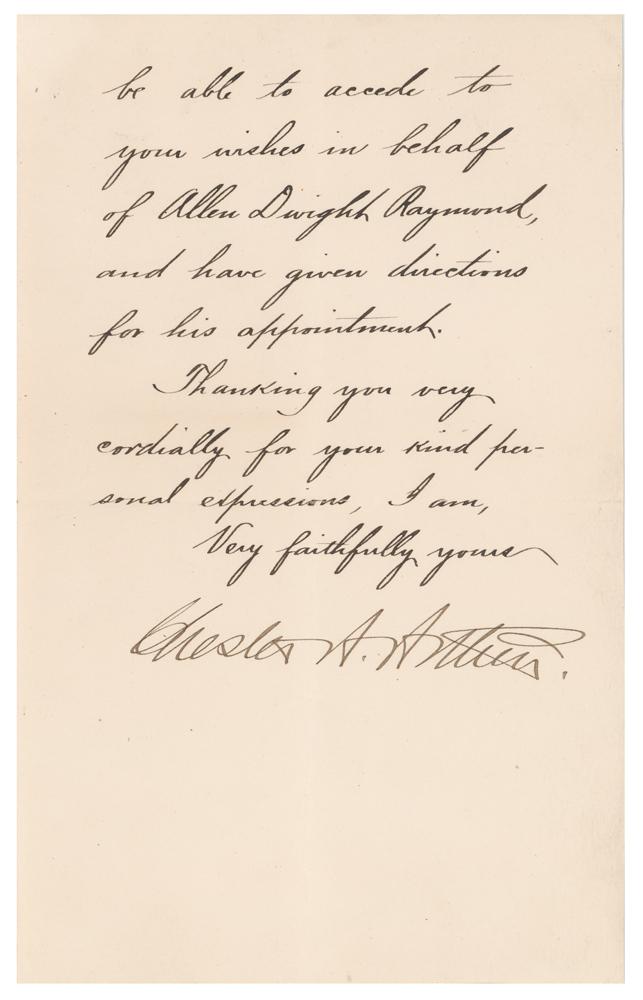 be able to accede to
your wishes in behalf
of Allen Dwight Raymond,
and have given directions
for his appointment.
Thanking you very
cordially for your kind per-
sonal expressions, I am,
Very faithfully yours
Chester A. Arthur.